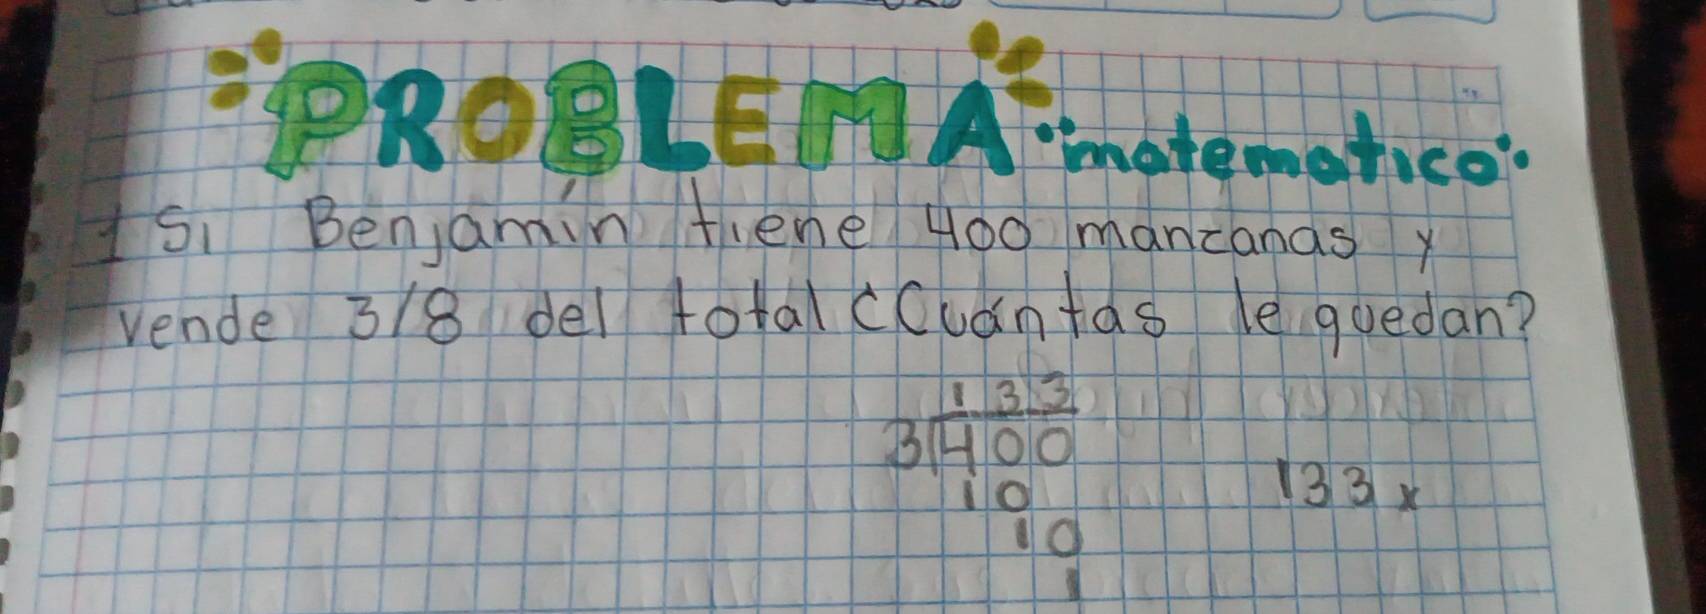 PROBLEMA matematico
1 Si Benjamín tiene 400 manzanas y
vende 3/8 del total ¿Cuántas le quedan?
133
3 400
10
10
1
133 x